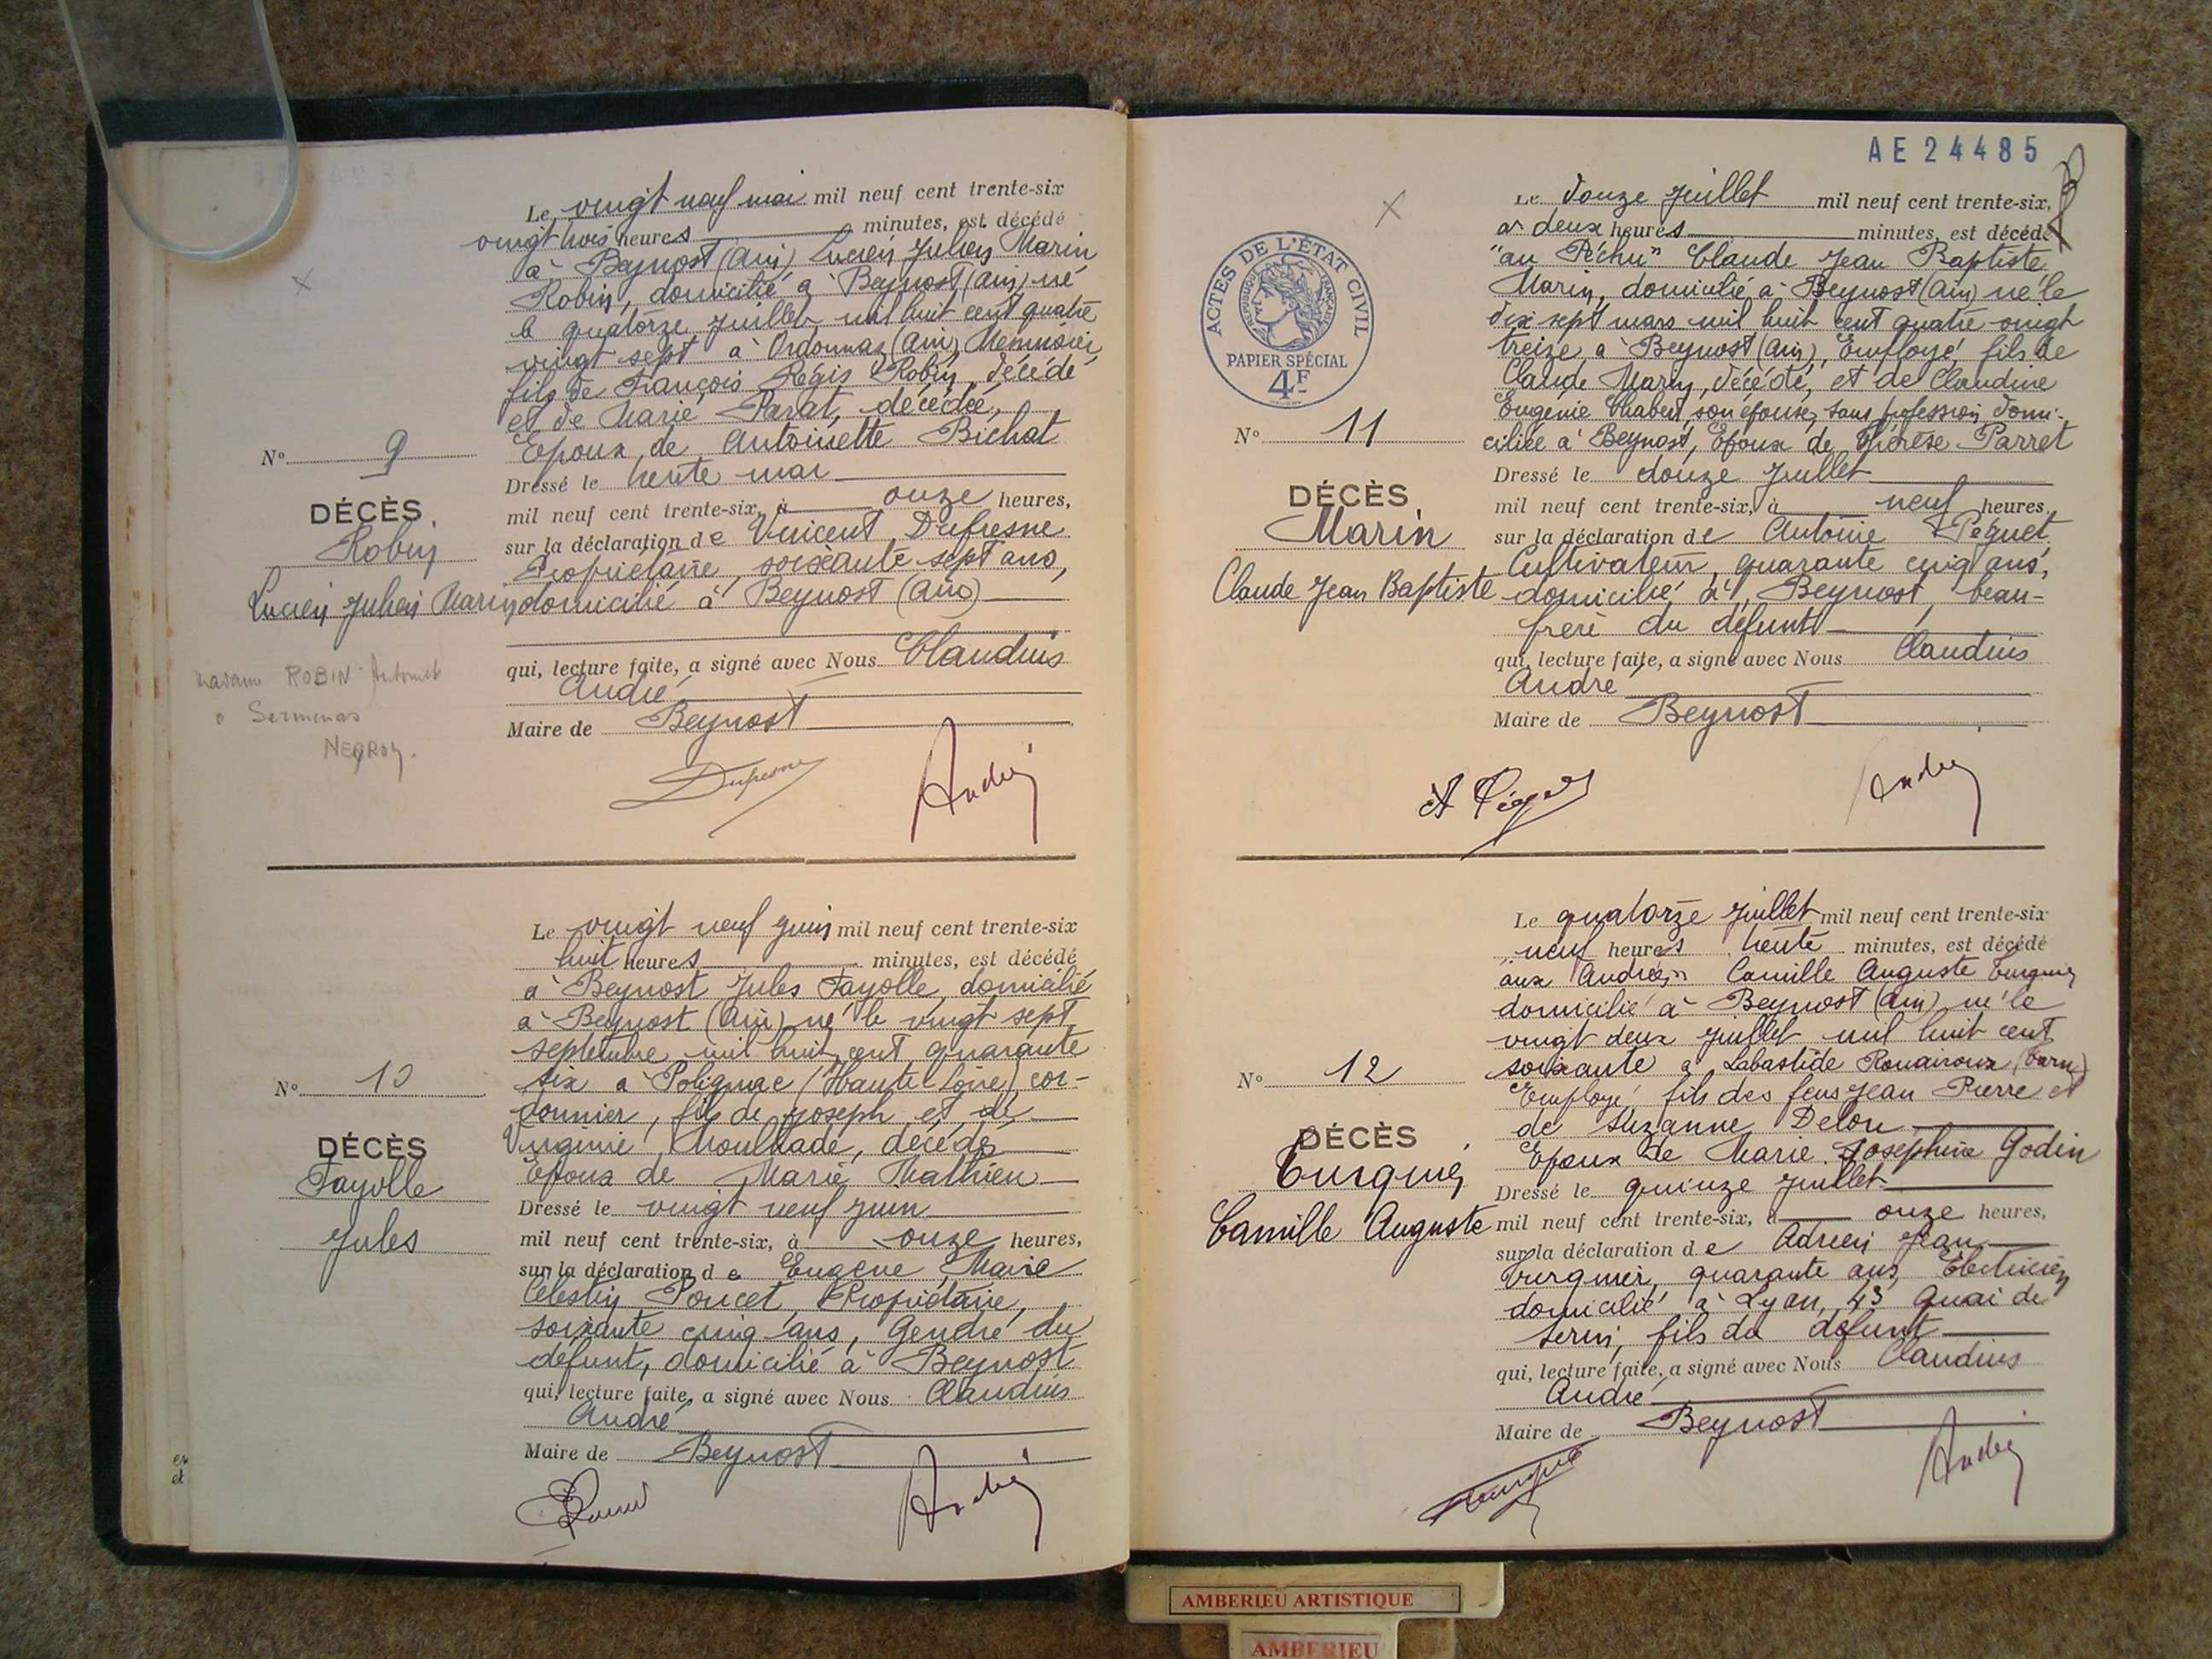 Le vingt neuf mai mil neuf cent trente-six
vingt trois heures minutes, est décédé
à Beynost (Ain) Lucien Julien Marin
Robin, domicilié à Beynost (Ain) né
le quatorze juillet mil huit cent quatre
vingt sept à Ordonnaz (Ain) Menuisier
fils de François Régis Robin, décédé
et de Marie Parat, décédée,
Epoux de Antoinette Bichat
N° 9
Dressé le trente mai
DÉCÈS
mil neuf cent trente-six, à onze heures,
Robin
sur la déclaration de Vincent Dufresne
Propriétaire, soixante sept ans,
Lucien Julien Marin
domicilié à Beynost (Ain)
qui, lecture faite, a signé avec Nous Claudius
André
madame ROBIN Antoinet
Sermenas
NEYRON.
Maire de Beynost
Dufresne
André
Le vingt neuf juin mil neuf cent trente-six
huit heures minutes, est décédé
à Beynost Jules Fayolle, domicilié
à Beynost (Ain) né le vingt sept
septembre mil huit cent quarante
six à Polignac (Haute Loire) cor-
donnier, fils de Joseph et de
Virginie décédés
Epoux de Marie Mathieu
N° 10
DÉCÈS
Fayolle
Jules
Dressé le vingt neuf juin
mil neuf cent trente-six, à onze heures,
sur la déclaration de Eugène Marie
Célestin Poncet, Propriétaire,
soixante cinq ans, Gendre du
défunt, domicilié à Beynost
qui, lecture faite, a signé avec Nous Claudius
André
Maire de Beynost
André
er
et
AE 24485
Le douze juillet mil neuf cent trente-six,
à deux heures minutes, est décédé
"au Péchu" Claude Jean Baptiste
Marin, domicilié à Beynost (Ain) né le
dix sept mars mil huit cent quatre vingt
treize à Beynost (Ain), Employé, fils de
Claude Marin, décédé, et de Claudine
Eugénie Chabert son épouse, sans profession domi-
ciliée à Beynost, Epoux de Thérèse Parret
ACTES DE L'ÉTAT CIVIL
RÉPUBLIQUE FRANÇAISE
PAPIER SPÉCIAL
4F
N° 11
DÉCÈS
Marin
Claude Jean Baptiste
Dressé le douze juillet
mil neuf cent trente-six, à neuf heures,
sur la déclaration de Antoine Péguet
Cultivateur, quarante cinq ans,
domicilié à Beynost, beau-
frère du défunt
qui, lecture faite, a signé avec Nous Claudius
André
Maire de Beynost
A Péguet
André
Le quatorze juillet mil neuf cent trente-six
neuf heures trente minutes, est décédé
"aux Andrés" Camille Auguste Turquié
domicilié à Beynost (Ain) né le
vingt deux juillet mil huit cent
soixante à Labastide Rouairoux (Tarn)
Employé fils des feus Jean Pierre et
de Suzanne Delon
Epoux de Marie Joséphine Godin
N° 12
DÉCÈS
Camille Auguste
Dressé le quinze juillet
mil neuf cent trente-six, à onze heures,
sur la déclaration de Adrien Jean
quarante ans, Electricien
domicilié à Lyon, 43 Quai de
Serin, fils du défunt
qui, lecture faite, a signé avec Nous Claudius
André
Maire de Beynost
André
AMBERIEU ARTISTIQUE
AMBERIEU